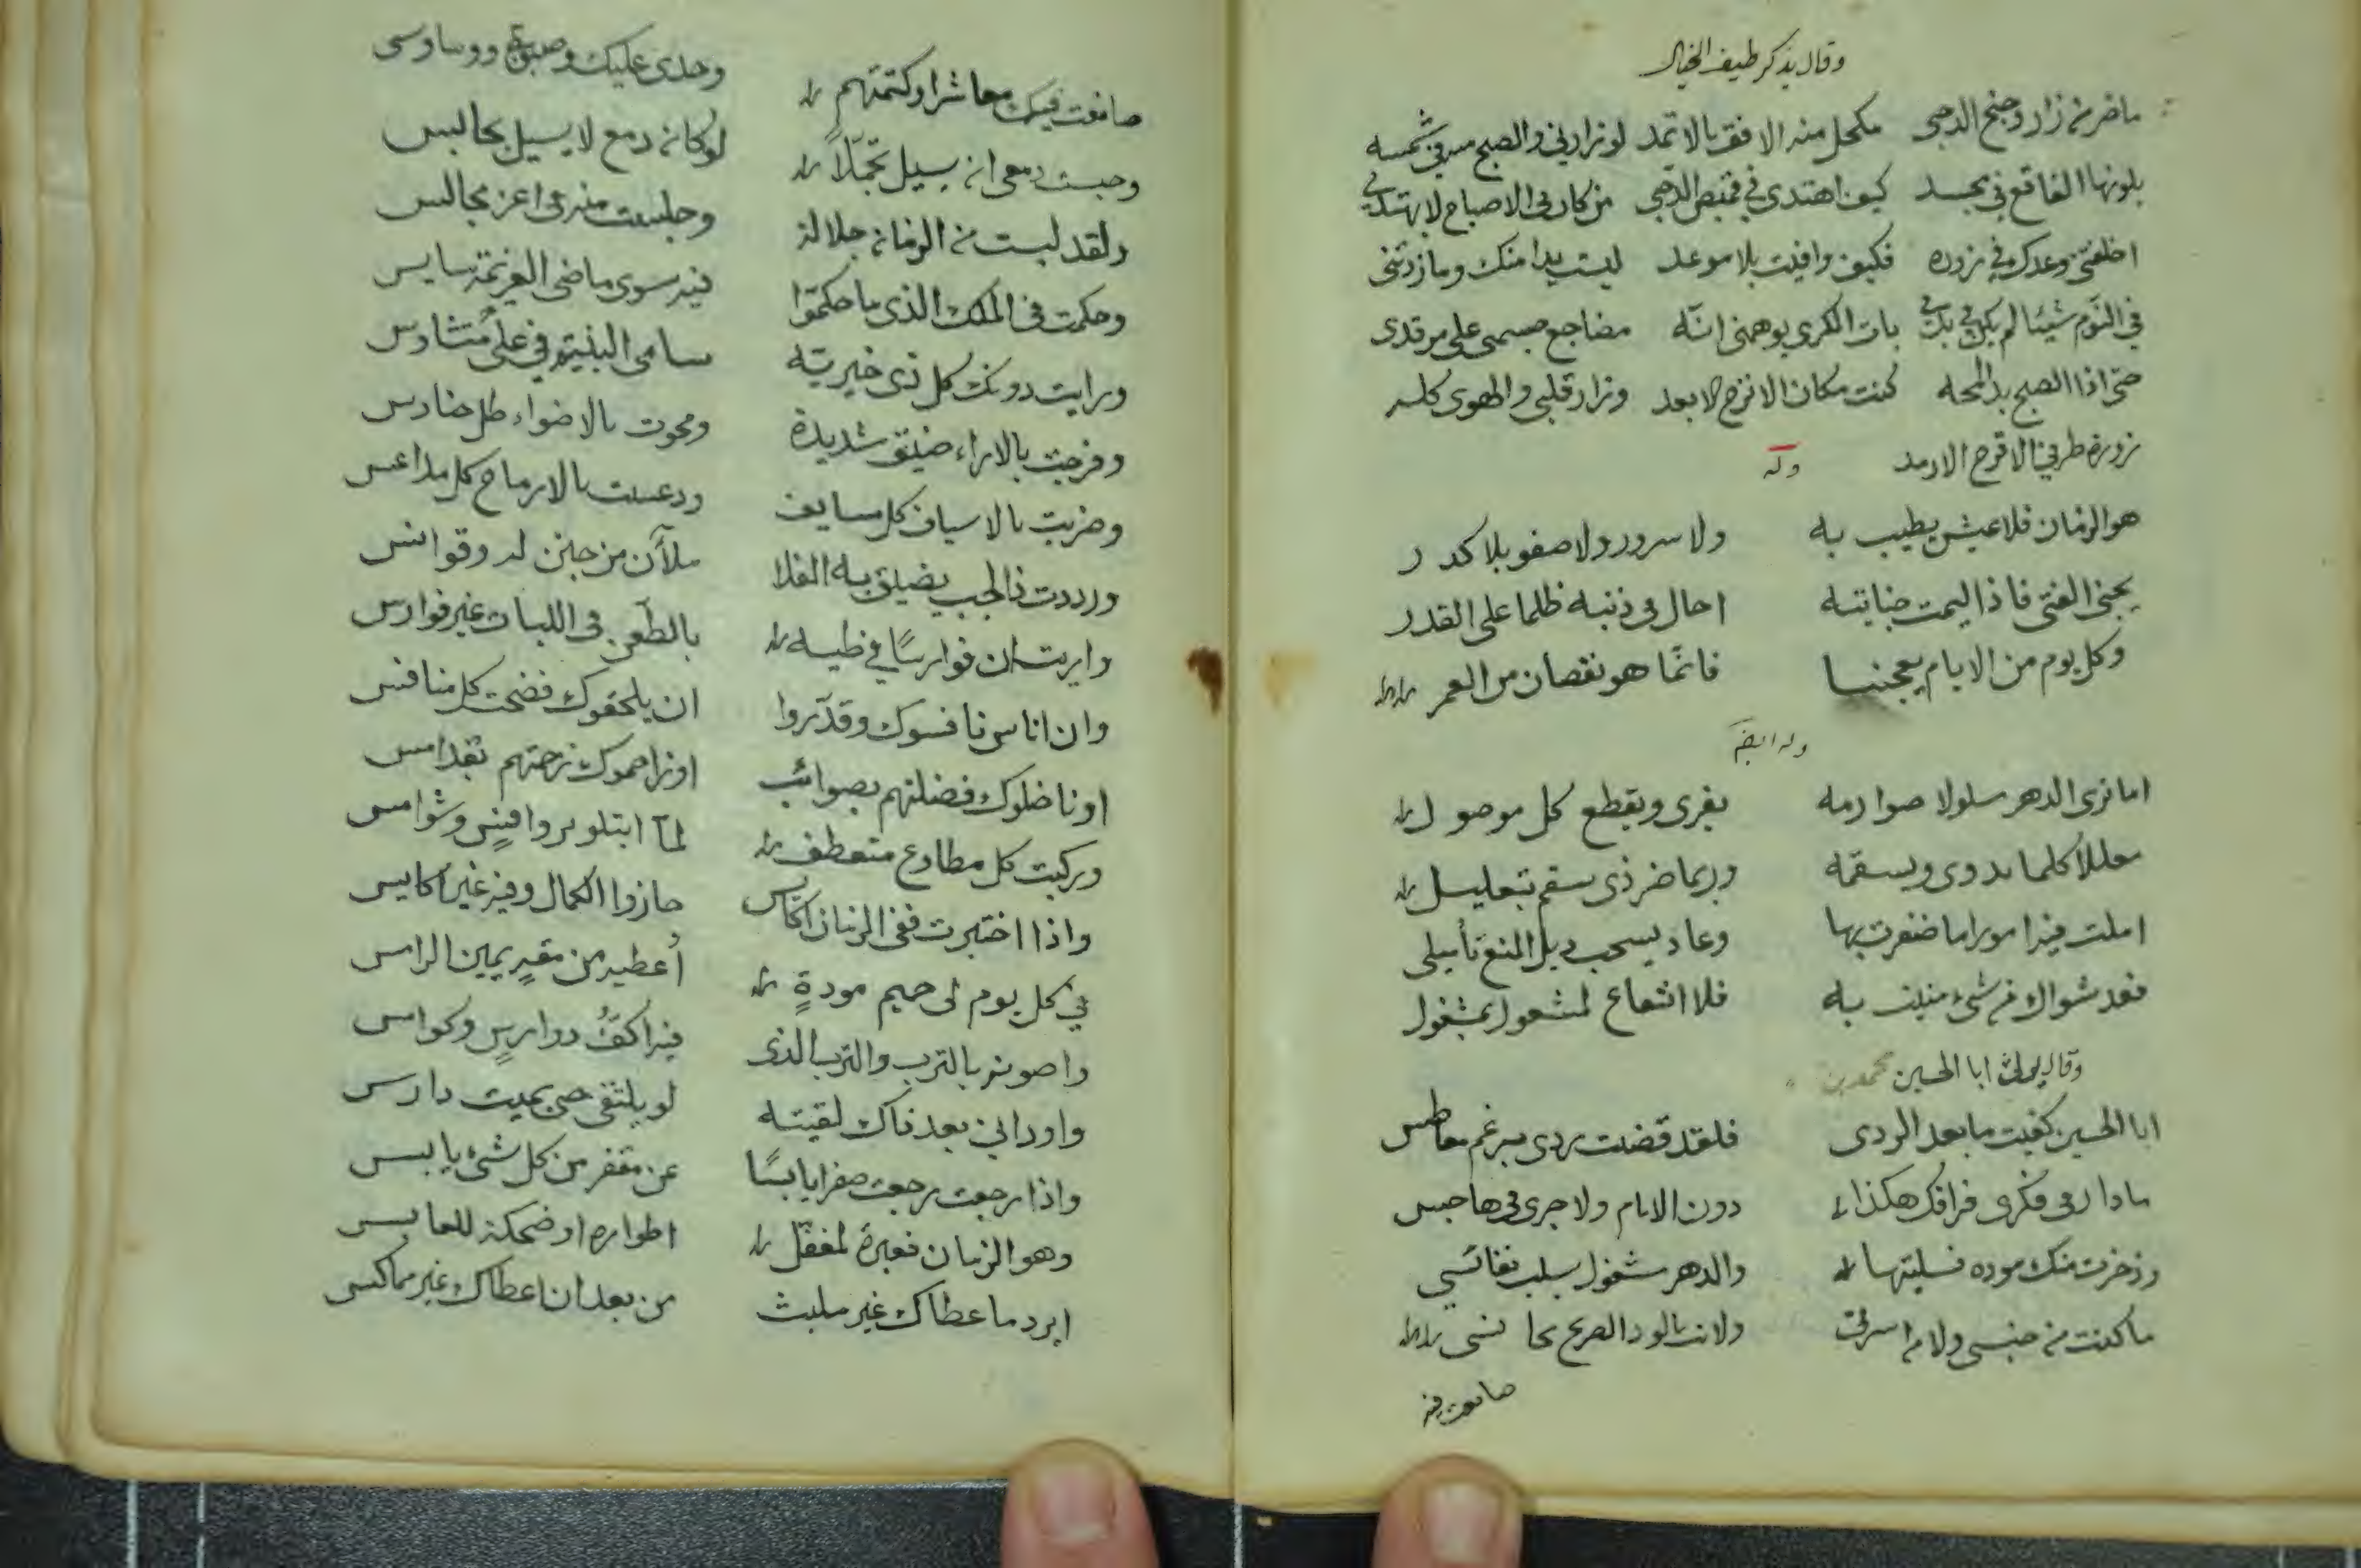 وقال يذكر طيف الخيال
ما ضر من زار وجنح الدجى مكحل منه الافق بالاثمد لو زارني والصبح من شمسه
بلونها الفاقع في مجسد كيف اهتدى في قميص الدجى من كان في الاصباح لا يهتدي
اخلفتني وعدك في زورة فكيف وافيت بلا موعد ليست يدا منك وما زدتني
في النوم شيئا لم يكن في يدي بات الكرى يوهمني انه مضاجع جسمي على مرقدي
حتى اذا الصبح بدا لمحه كنت مكان الانزح الابعد وزار قلبي والهوى كله
زورة طرفي الاقرح الارمد وله
هو الزمان فلا عيش يطيب به ولا سرور ولا صفو بلا كدر
يجني الفتى فاذا ليمت جنايته احال في ذنبه ظلما على القدر
وكل يوم من الايام يعجبنا فانما هو نقصان من العمر
وله ايضا
اما ترى الدهر مسلولا صوارمه يفري ويقطع كل موصول
معللا كلما يدوى ويسقمه وربما ضر ذي سقم بتعليل
املت فيه امورا ما ظفرت بها وعاد يسحب ذيل المنع تأميلي
فعد سؤالك عن شيء منيت به فلا انتفاع لمشغول بمشغول
وقال يرثى ابا الحسين محمد بن
ابا الحسين كفيت ما بعد الردى فلقد قضت بردى برغم معاطس
ما دار في فكري فراقك هكذا دون الانام ولا جرى في هاجس
وذخرت منك مودة فسلبتها والدهر مشغول بسلب نفائسي
ما كنت من جنسي ولا من اسرتي ولانت بالود الصريح مجانسي
صانعت فيك
صانعت فيك معاشرا وكتمتهم وحدى عليك وصبوتي ووساوسى
وحبست دمعى ان يسيل تجملا لو كان دمع لا يسيل بحابس
ولقد لبست من الزمان جلالة وجلست منه في اعز مجالس
وحكمت في الملك الذى ما حكموا فيه سوى ماضى العزيمة سايس
ورايت دونك كل ذى خيرية سامى البنية في على متشاوس
وفرجت بالاراء ضيق شديدة ومحوت بالاضواء ظل حنادس
وضربت بالاسياف كل مسايف ودعست بالارماح كل مداعس
ورددت ذا لجب يضيق به الفلا ملآن من جنن له وقوانس
واريت ان فوارسا في طيه بالطعن في اللبات غير فوارس
وان اناس نافسوك وقدروا ان يلحقوك فضحت كل منافس
او ناضلوك فضلتهم بصوائب او زاحموك زحمتهم بقدامس
وركبت كل مطاوع متعطف لما ابتلو بروافس وشوامس
واذا اختبرت ففي الزمان اكايس حازوا الكمال وفيه غير اكايس
في كل يوم لى حميم مودة أعطيه من مقر يمين الرامس
واصونه بالترب والترب الذى فيه اكف دوارس وكوامس
واود اني بعد ذاك لقيته لو يلتقى حى بميت دارس
واذا رجعت رجعت صفرا يابسا عن مقفر من كل شيء يابس
وهو الزمان فعبرة لمغفل اطواره او ضحكة للعابس
ابرد ما عطاك غير ملبث من بعد ان اعطاك غير مماكس